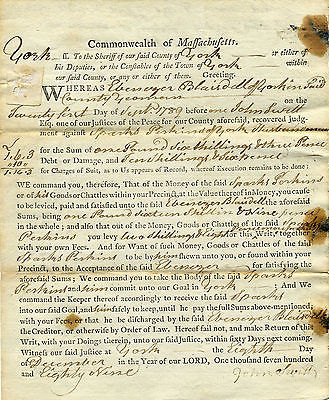 Commonwealth of Maſſachuſetts.
York ſſ. To the Sheriff of our ſaid County of York or either of
his Deputies, or the Conſtables of the Town of York within
our ſaid County, or any or either of them. Greeting.
WHEREAS Ebenezer Blaisdell of York in Said
County Yeoman on the
Twenty first Day of Sept. 1789 before John Swett
Eſq. one of our Juſtices of the Peace for our County aforeſaid, recovered judg-
ment againſt Sparks Perkins of York
1. 6. 3 for the Sum of one Pound Six Shillings & three Pence
Debt or Damage, and Ten Shillings & Six pence
1.16.3 for Charges of Suit, as to Us appears of Record, whereof Execution remains to be done:
WE command you, therefore, That of the Money of the ſaid Sparks Perkins
or his Goods or Chattles within your Precinct, at the Value thereof in Money, you cauſe
to be levied, paid and ſatisfied unto the ſaid Ebenezer Blaisdell the
aforeſaid Sums, being one Pound Sixteen Shillings & Nine pence
in the whole: And alſo that out of the Money, Goods or Chattles of the ſaid Sparks
Perkins you levy for this Writ, together with
your own Fees. And for Want of ſuch Money, Goods or Chattles of the ſaid
Sparks Perkins to be by him ſhewn unto you, or found within your
Precinct, to the Acceptance of the ſaid Ebenezer for ſatisfying the
aforeſaid Sums; WE command you to take the Body of the ſaid Sparks
Perkins and him commit unto our Goal in York And WE
command the Keeper thereof accordingly to receive the ſaid Sparks
into our ſaid Goal, and him ſafely to keep, until he pay the full Sums above-mentioned,
with your Fees, or that he be diſcharged by the ſaid Ebenezer Blaisdell
the Creditor, or otherwiſe by Order of Law. Hereof fail not, and make Return of this
Writ, with your Doings therein, unto our ſaid Juſtice, within ſixty Days next coming.
Witneſs our ſaid Juſtice at York the Eighth Day
of December in the Year of our LORD, one Thouſand ſeven hundred
and Eighty Nine
John Swett